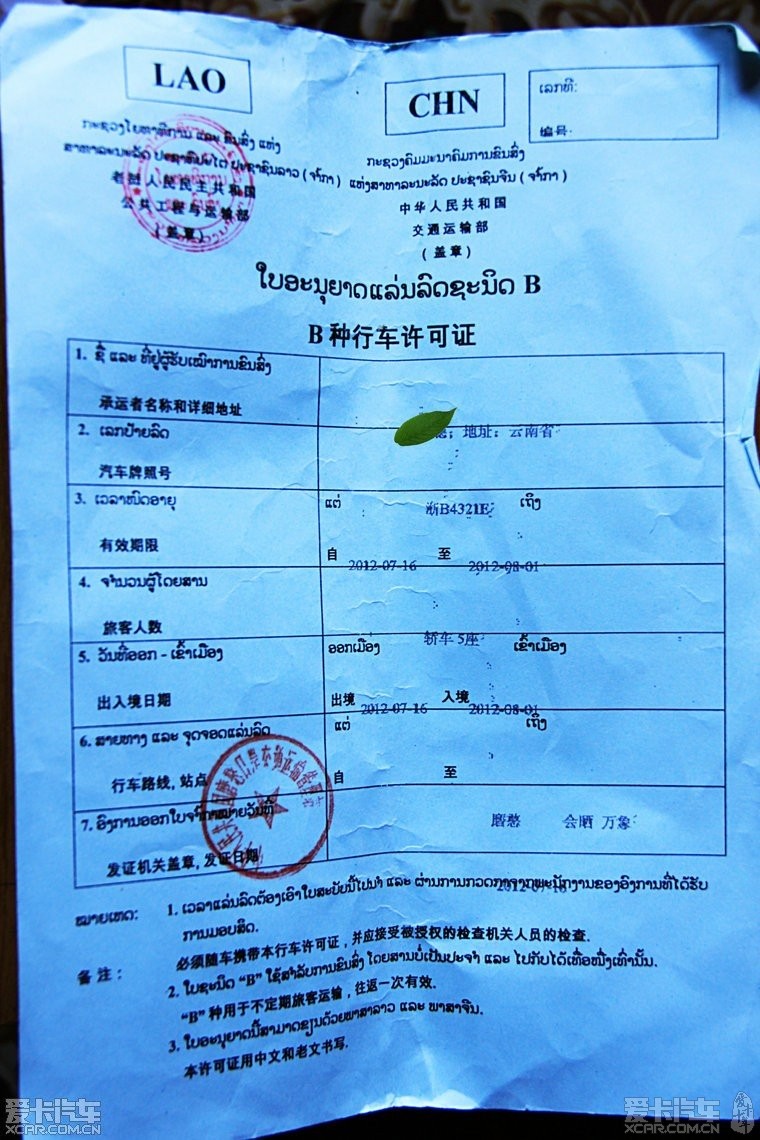 LAO
CHN
ເລກທີ:
编号:
ກະຊວງໂຍທາທິການ ແລະ ຂົນສົ່ງ ແຫ່ງ
ສາທາລະນະລັດ ປະຊາທິປະໄຕ ປະຊາຊົນລາວ (ຈ້ຳກາ)
老挝人民民主共和国
公共工程与运输部
(盖章)
ກະຊວງຄົມມະນາຄົມການຂົນສົ່ງ
ແຫ່ງສາທາລະນະລັດ ປະຊາຊົນຈີນ (ຈ້ຳກາ)
中华人民共和国
交通运输部
(盖章)
ໃບອະນຸຍາດແລ່ນລົດຊະນິດ B
B 种行车许可证
1. ຊື່ ແລະ ທີ່ຢູ່ຜູ້ຮັບເໝົາການຂົນສົ່ງ
承运者名称和详细地址
2. ເລກປ້າຍລົດ
地址: 云南省
汽车牌照号
3. ເວລາໝົດອາຍຸ
ແຕ່ 浙B4321E ເຖິງ
有效期限
自 2012-07-16 至 2012-08-01
4. ຈຳນວນຜູ້ໂດຍສານ
旅客人数
5. ວັນທີ່ອອກ - ເຂົ້າເມືອງ
ອອກເມືອງ 轿车 5座 ເຂົ້າເມືອງ
出入境日期
出境 2012-07-16 入境 2012-08-01
6. ສາຍທາງ ແລະ ຈຸດຈອດແລ່ນລົດ
ແຕ່ ເຖິງ
行车路线, 站点
自 至
7. ອົງການອອກໃບຈ້ຳກາໝາຍວັນທີ່
磨憨 会晒 万象
发证机关盖章, 发证日期
ໝາຍເຫດ: 1. ເວລາແລ່ນລົດຕ້ອງເອົາໃບສະບັບນີ້ໄປນຳ ແລະ ຜ່ານການກວດກາຈາກພະນັກງານຂອງອົງການທີ່ໄດ້ຮັບ
ການມອບສິດ.
备注: 必须随车携带本行车许可证, 并应接受被授权的检查机关人员的检查.
2. ໃບຊະນິດ "B" ໃຊ້ສຳລັບການຂົນສົ່ງ ໂດຍສານບໍ່ເປັນປະຈຳ ແລະ ໄປກັບໄດ້ເທື່ອໜຶ່ງເທົ່ານັ້ນ.
"B" 种用于不定期旅客运输, 往返一次有效.
3. ໃບອະນຸຍາດນີ້ສາມາດຂຽນດ້ວຍພາສາລາວ ແລະ ພາສາຈີນ.
本许可证用中文和老文书写.
爱卡汽车
XCAR.COM.CN
爱卡汽车
XCAR.COM.CN